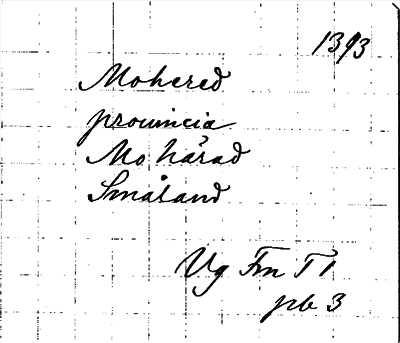 1393
Mohered
prouincia
Mo härad
Småland
Vg Fm T 1
pb 3